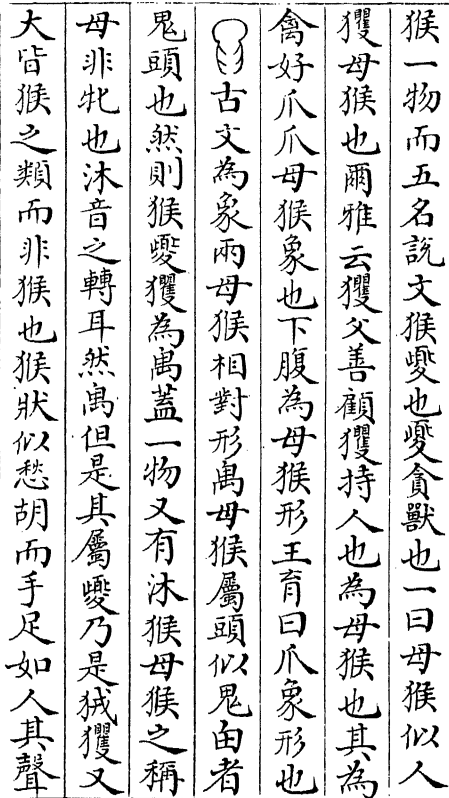 猴一物而五名說文猴夒也夒貪獸也一曰母猴似人
玃母猴也爾雅云玃父善顧玃持人也為母猴也其為
禽好爪爪母猴象也下腹為母猴形王育曰爪象形也
古文為象兩母猴相對形禺母猴屬頭似鬼甶者
鬼頭也然則猴夒玃為禺蓋一物又有沐猴母猴之稱
母非牝也沐音之轉耳然禺但是其屬夒乃是狨玃又
大皆猴之類而非猴也猴狀似愁胡而手足如人其聲